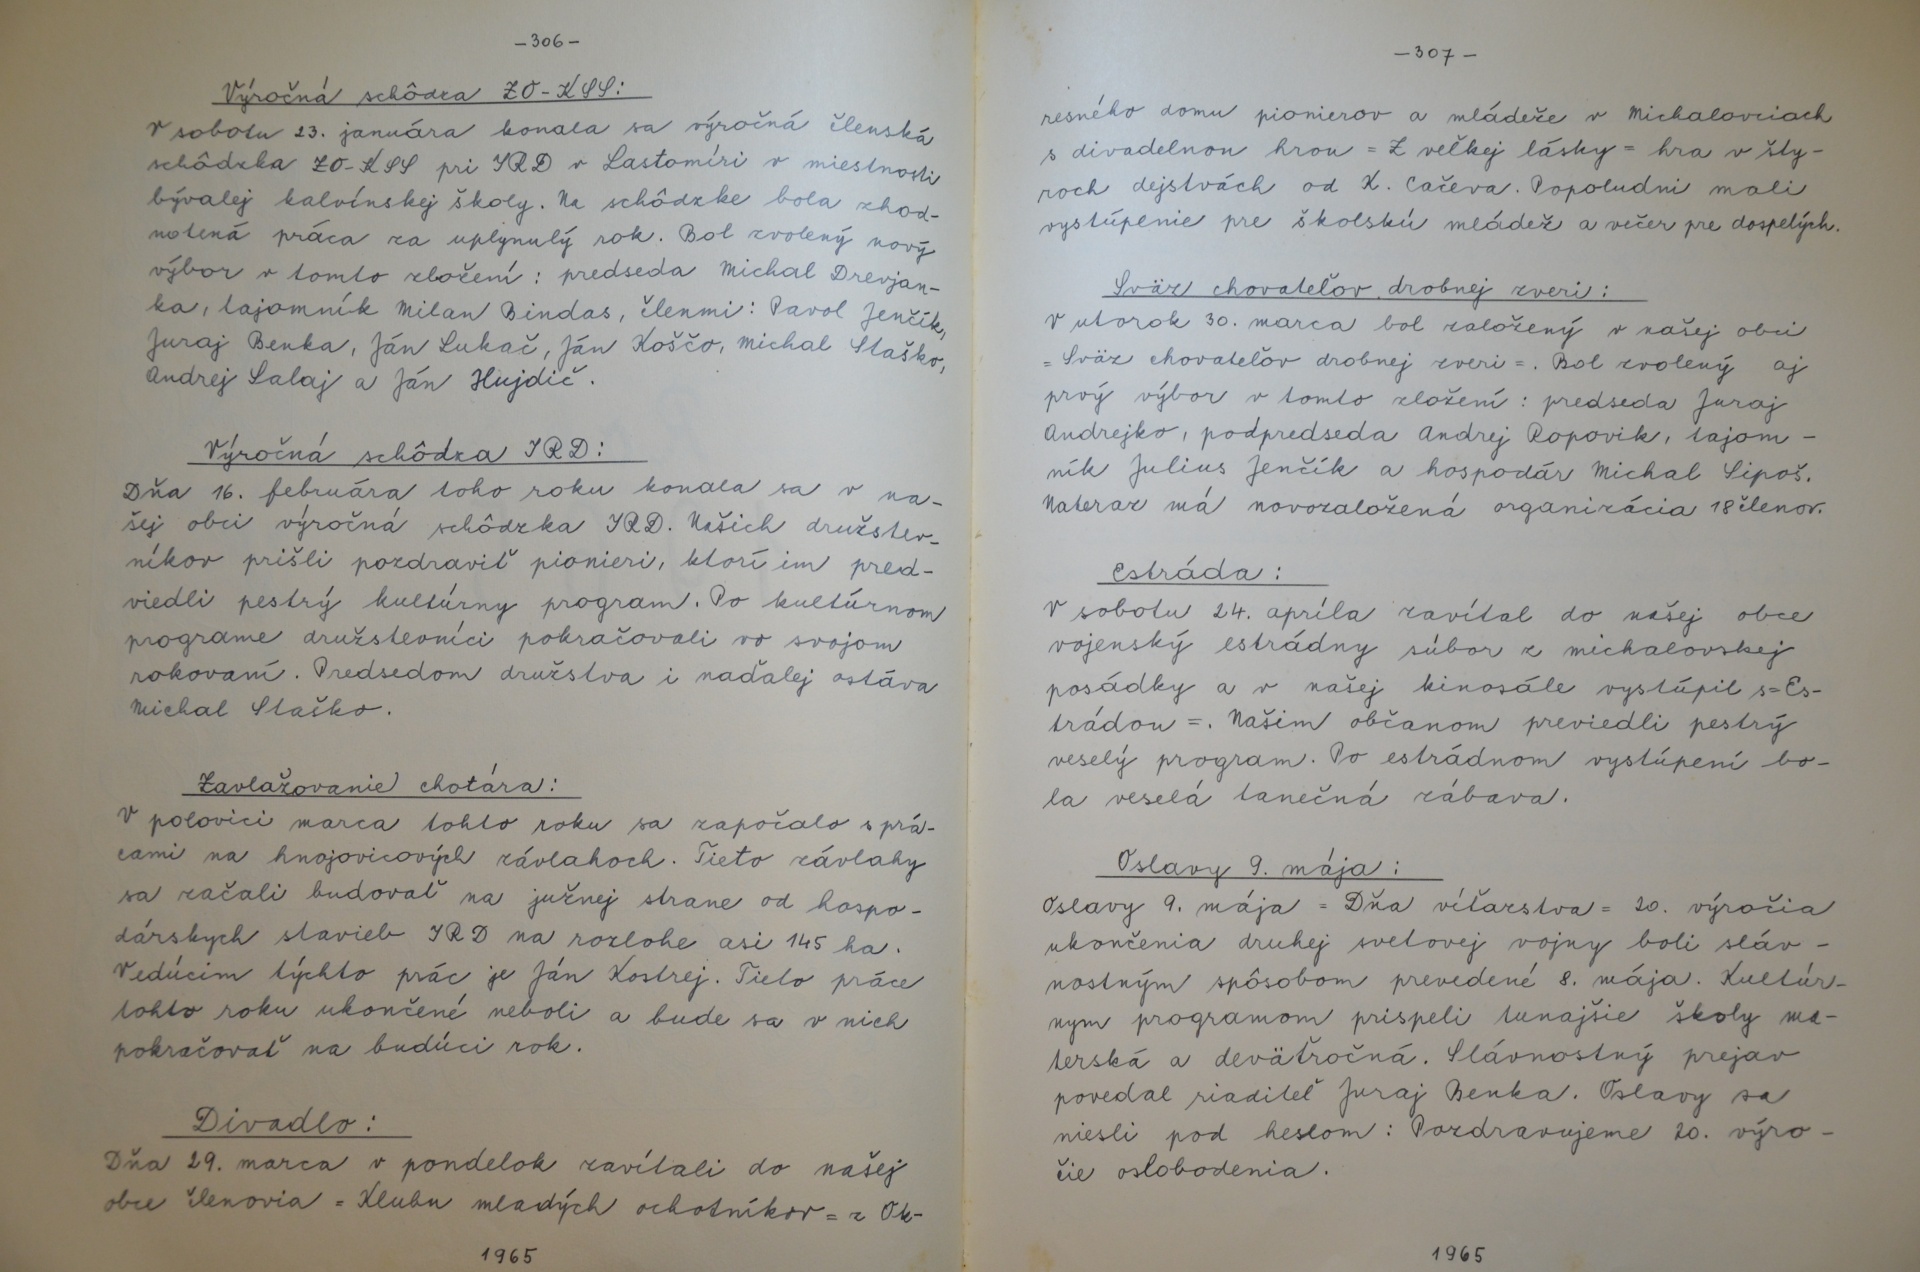 -306-
Výročná schôdza ZO-KSS:
V sobotu 23. januára konala sa výročná členská
schôdzka ZO-KSS pri JRD v Lastomíri v miestnosti
bývalej kalvínskej školy. Na schôdzke bola zhod-
notená práca za uplynulý rok. Bol zvolený nový
výbor v tomto zložení: predseda Michal Drevjan-
ka, tajomník Milan Bindas, členmi: Pavol Jenčík,
Juraj Benka, Ján Lukač, Ján Koščo, Michal Staško,
Andrej Salaj a Ján Hujdič.
Výročná schôdza JRD:
Dňa 16. februára toho roku konala sa v na-
šej obci výročná schôdzka JRD. Našich družstev-
níkov prišli pozdraviť pionieri, ktorí im pred-
viedli pestrý kultúrny program. Po kultúrnom
programe družstevníci pokračovali vo svojom
rokovaní. Predsedom družstva i naďalej ostáva
Michal Staško.
Zavlažovanie chotára:
V polovici marca tohto roku sa započalo s prá-
cami na hnojovicových závlahoch. Tieto závlahy
sa začali budovať na južnej strane od hospo-
dárskych stavieb JRD na rozlohe asi 145 ha.
Vedúcim týchto prác je Ján Kostrej. Tieto práce
tohto roku ukončené neboli a bude sa v nich
pokračovať na budúci rok.
Divadlo:
Dňa 29. marca v pondelok zavítali do našej
obce členovia = Klubu mladých ochotníkov = z Ok-
1965
-307-
resného domu pionierov a mládeže v Michalovciach
s divadelnou hrou = Z veľkej lásky = hra v šty-
roch dejstvách od K. Cačeva. Popoludni mali
vystúpenie pre školskú mládež a večer pre dospelých.
Sväz chovateľov drobnej zveri:
V utorok 30. marca bol založený v našej obci
= Sväz chovateľov drobnej zveri =. Bol zvolený aj
prvý výbor v tomto zložení: predseda Juraj
Andrejko, podpredseda Andrej Ropovik, tajom-
ník Julius Jenčík a hospodár Michal Sipoš.
Nateraz má novozaložená organizácia 18 členov.
Estráda:
V sobotu 24. apríla zavítal do našej obce
vojenský estrádny súbor z michalovskej
posádky a v našej kinosále vystúpil s = Es-
trádou =. Našim občanom previedli pestrý
veselý program. Po estrádnom vystúpení bo-
la veselá tanečná zábava.
Oslavy 9. mája:
Oslavy 9. mája = Dňa víťazstva = 20. výročia
ukončenia druhej svetovej vojny boli sláv-
nostným spôsobom prevedené 8. mája. Kultúr-
nym programom prispeli tunajšie školy ma-
terská a deväťročná. Slávnostný prejav
povedal riaditeľ Juraj Benka. Oslavy sa
niesli pod heslom: Pozdravujeme 20. výro-
čie oslobodenia.
1965